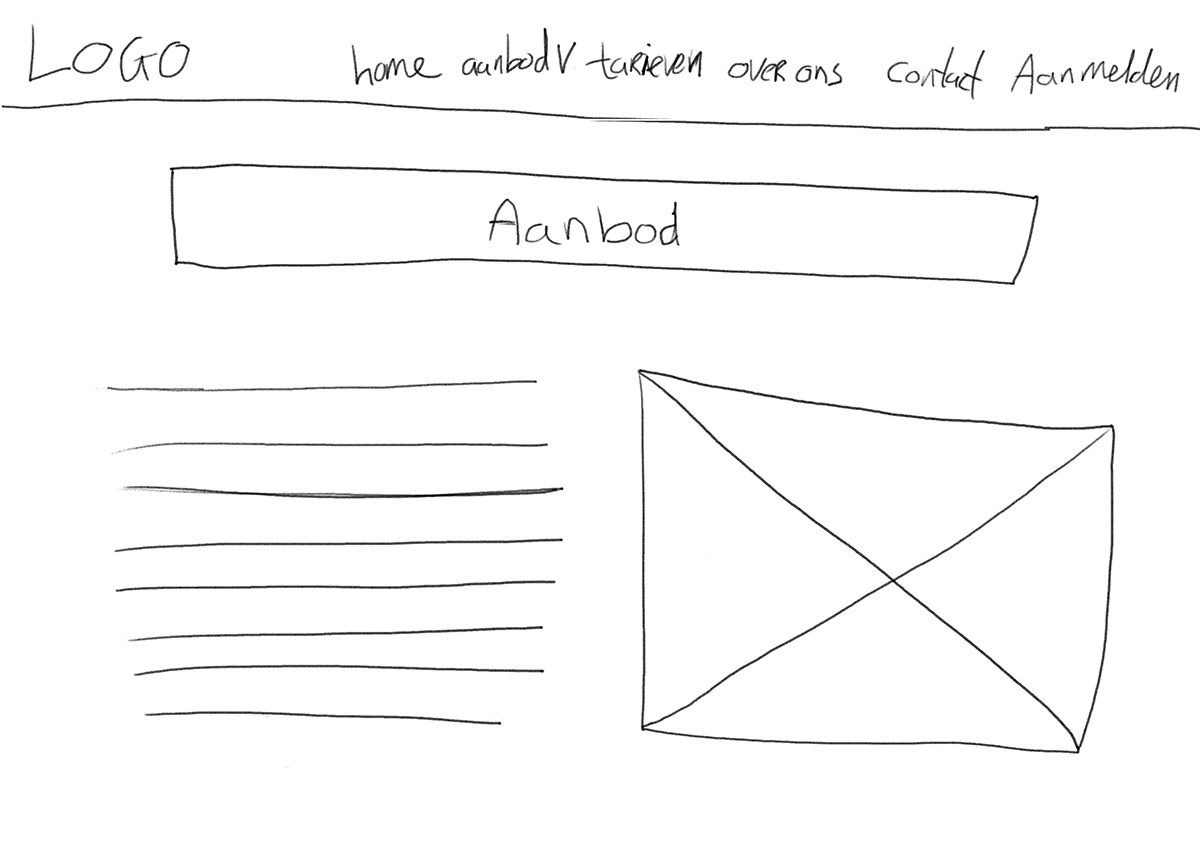 LOGO home aanbod V tarieven over ons contact Aanmelden
Aanbod